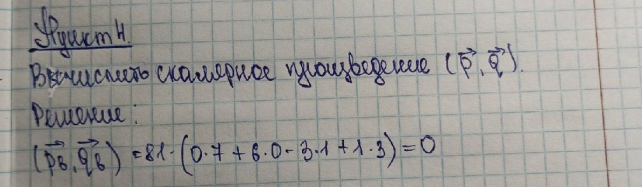 Пункт 4.
Вычислить скалярное произведение (p⃗, q⃗).
Решение:
(p⃗в, q⃗в) = 81·(0·7+6·0-3·1+1·3)=0